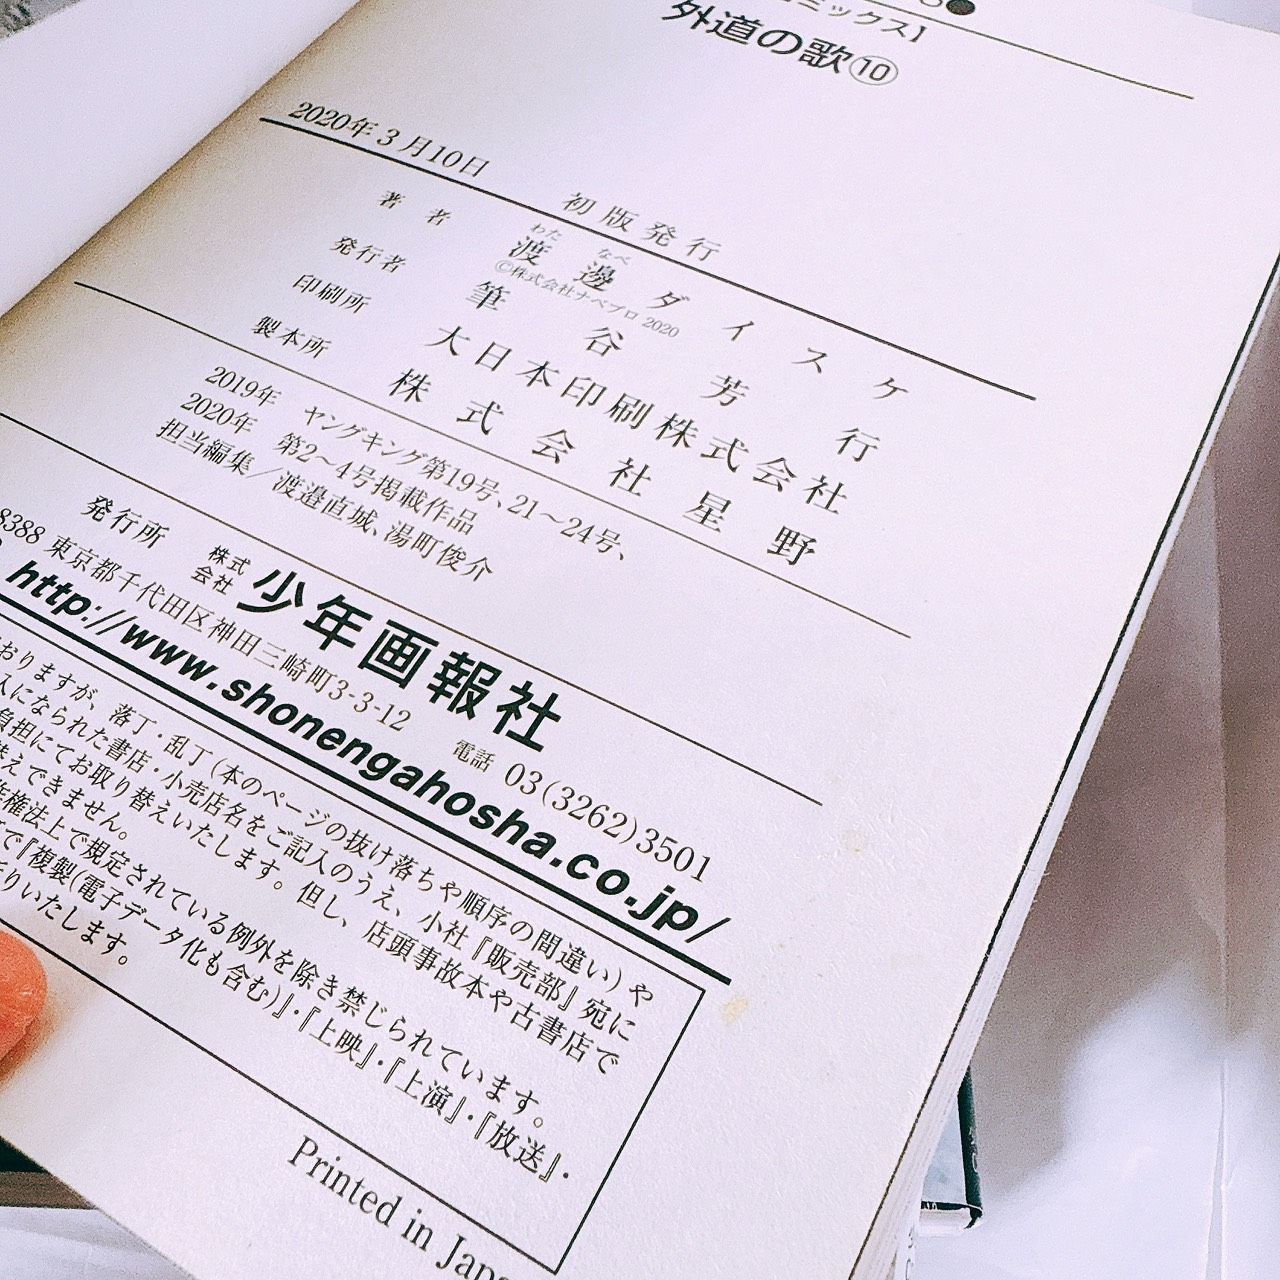 ミックス】
外道の歌⑩
2020年3月10日 初版発行
著者 渡邊ダイスケ
わた なべ
©株式会社ナベプロ 2020
発行者 筆谷芳行
印刷所 大日本印刷株式会社
製本所 株式会社星野
2019年 ヤングキング第19号、21～24号、
2020年 第2～4号掲載作品
担当編集／渡邉直城、湯町俊介
発行所 株式会社 少年画報社
8388 東京都千代田区神田三崎町3-3-12
電話 03(3262)3501
http://www.shonengahosha.co.jp/
おりますが、落丁・乱丁(本のページの抜け落ちや順序の間違い)や
入になられた書店・小売店名をご記入のうえ、小社『販売部』宛に
負担にてお取り替えいたします。但し、店頭事故本や古書店で
替えできません。
作権法上で規定されている例外を除き禁じられています。
で『複製(電子データ化も含む)』・『上映』・『上演』・『放送』・
りいたします。
Printed in Japa